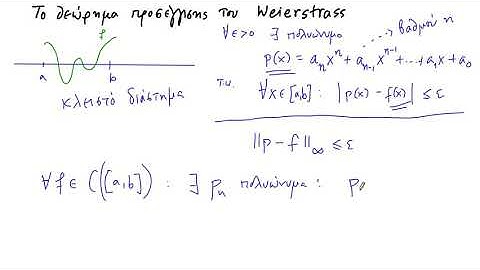 Το θεώρημα προσέγγισης του Weierstrass
f
a b
κλειστό διάστημα
∀ε>0 ∃ πολυώνυμο
βαθμού n
p(x) = aₙxⁿ + aₙ₋₁xⁿ⁻¹ + ... + a₁x + a₀
τ.ω. ∀x∈[a,b]: |p(x) - f(x)| ≤ ε
‖p - f‖∞ ≤ ε
∀f∈C([a,b]) : ∃ pₙ πολυώνυμα : p